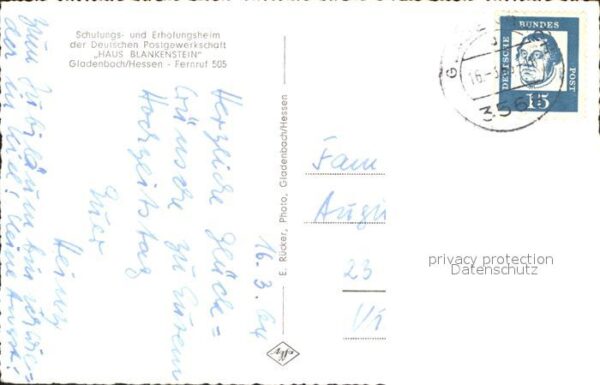 Schulungs- und Erholungsheim
der Deutschen Postgewerkschaft
„HAUS BLANKENSTEIN"
Gladenbach/Hessen - Fernruf 505
16.3.64
Herzliche Glück=
wünsche zu Eurem
Hochzeitstag
Euer
Heinz
Zum Jubiläum
E. Rücker, Photo, Gladenbach/Hessen
DEUTSCHE
BUNDES
POST
15
16.-3
356
Fam
23
privacy protection
Datenschutz